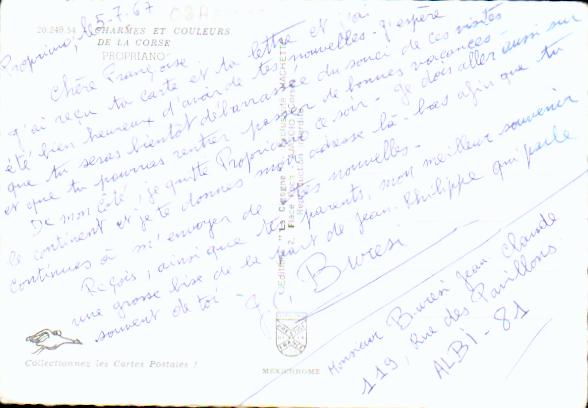 Propriano, le 5-7-67
20.249.54 CHARMES ET COULEURS
DE LA CORSE
PROPRIANO
Chère Françoise.
J'ai reçu ta carte et ta lettre et j'ai
été bien heureux d'avoir de tes nouvelles. J'espère
que tu seras bientôt débarrassée du souci de ces visites
et que tu pourras rentrer passer de bonnes vacances.
De mon côté, je quitte Propriano ce soir. Je dois aller aussi sur
le continent et je te donnes mon adresse là-bas afin que tu
continues à m'envoyer de tes nouvelles.
Reçois, ainsi que tes parents, mon meilleur souvenir
une grosse bise de la part de Jean-Philippe qui parle
souvent de toi
J.C. Buresi
Monsieur Buresi Jean-Claude
119, Rue des Pavillons
ALBI - 81
Editions "La Cigogne"
HACHETTE
2, Place
Reproduction interdite
Collectionnez les Cartes Postales !
MEXICHROME